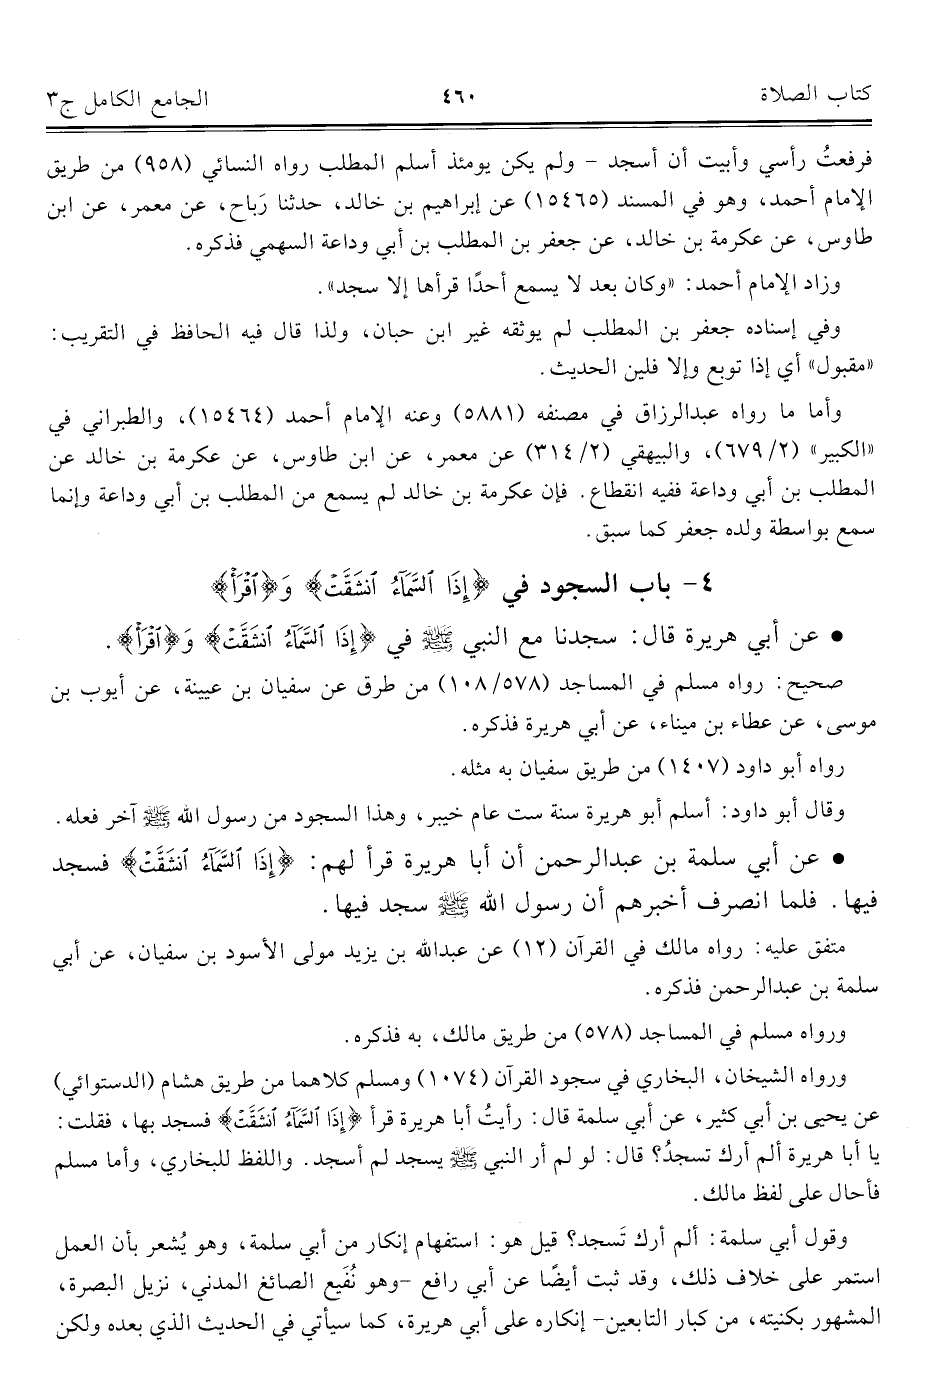 كتاب الصلاة ٤٦٠ الجامع الكامل ج٣
فرفعتُ رأسي وأبيت أن أسجد - ولم يكن يومئذ أسلم المطلب رواه النسائي (٩٥٨) من طريق
الإمام أحمد، وهو في المسند (١٥٤٦٥) عن إبراهيم بن خالد، حدثنا رَباح، عن معمر، عن ابن
طاوس، عن عكرمة بن خالد، عن جعفر بن المطلب بن أبي وداعة السهمي فذكره.
وزاد الإمام أحمد: «وكان بعد لا يسمع أحدًا قرأها إلا سجد».
وفي إسناده جعفر بن المطلب لم يوثقه غير ابن حبان، ولذا قال فيه الحافظ في التقريب:
«مقبول» أي إذا توبع وإلا فلين الحديث.
وأما ما رواه عبدالرزاق في مصنفه (٥٨٨١) وعنه الإمام أحمد (١٥٤٦٤)، والطبراني في
«الكبير» (٢/ ٦٧٩)، والبيهقي (٢/ ٣١٤) عن معمر، عن ابن طاوس، عن عكرمة بن خالد عن
المطلب بن أبي وداعة ففيه انقطاع. فإن عكرمة بن خالد لم يسمع من المطلب بن أبي وداعة وإنما
سمع بواسطة ولده جعفر كما سبق.
٤- باب السجود في ﴿إِذَا ٱلسَّمَآءُ ٱنشَقَّتۡ﴾ وَ﴿ٱقۡرَأۡ﴾
● عن أبي هريرة قال: سجدنا مع النبي ﷺ في ﴿إِذَا ٱلسَّمَآءُ ٱنشَقَّتۡ﴾ وَ﴿ٱقۡرَأۡ﴾.
صحيح: رواه مسلم في المساجد (٥٧٨/ ١٠٨) من طرق عن سفيان بن عيينة، عن أيوب بن
موسى، عن عطاء بن ميناء، عن أبي هريرة فذكره.
رواه أبو داود (١٤٠٧) من طريق سفيان به مثله.
وقال أبو داود: أسلم أبو هريرة سنة ست عام خيبر، وهذا السجود من رسول الله ﷺ آخر فعله.
● عن أبي سلمة بن عبدالرحمن أن أبا هريرة قرأ لهم: ﴿إِذَا ٱلسَّمَآءُ ٱنشَقَّتۡ﴾ فسجد
فيها. فلما انصرف أخبرهم أن رسول الله ﷺ سجد فيها.
متفق عليه: رواه مالك في القرآن (١٢) عن عبدالله بن يزيد مولى الأسود بن سفيان، عن أبي
سلمة بن عبدالرحمن فذكره.
ورواه مسلم في المساجد (٥٧٨) من طريق مالك، به فذكره.
ورواه الشيخان، البخاري في سجود القرآن (١٠٧٤) ومسلم كلاهما من طريق هشام (الدستوائي)
عن يحيى بن أبي كثير، عن أبي سلمة قال: رأيتُ أبا هريرة قرأ ﴿إِذَا ٱلسَّمَآءُ ٱنشَقَّتۡ﴾ فسجد بها، فقلت:
يا أبا هريرة ألم أرك تسجدُ؟ قال: لو لم أر النبي ﷺ يسجد لم أسجد. واللفظ للبخاري، وأما مسلم
فأحال على لفظ مالك.
وقول أبي سلمة: ألم أرك تَسجد؟ قيل هو: استفهام إنكار من أبي سلمة، وهو يُشعر بأن العمل
استمر على خلاف ذلك، وقد ثبت أيضًا عن أبي رافع -وهو نُفَيع الصائغ المدني، نزيل البصرة،
المشهور بكنيته، من كبار التابعين- إنكاره على أبي هريرة، كما سيأتي في الحديث الذي بعده ولكن